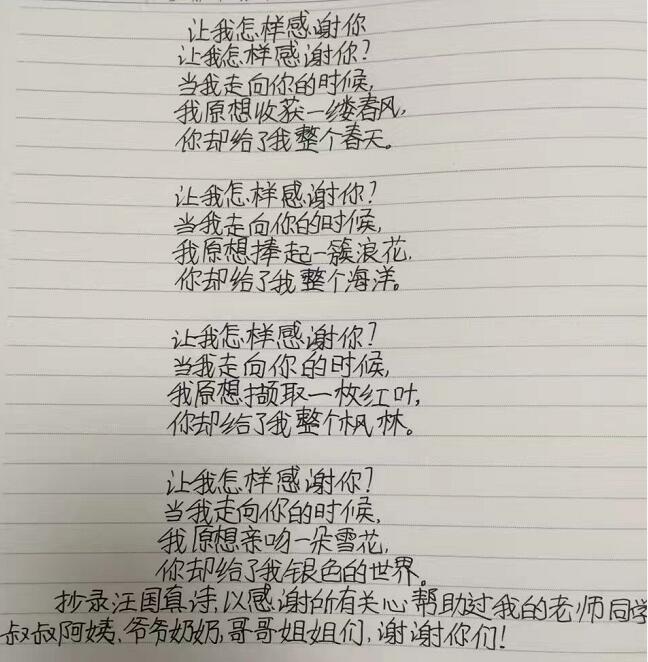 让我怎样感谢你
让我怎样感谢你?
当我走向你的时候,
我原想收获一缕春风,
你却给了我整个春天。
让我怎样感谢你?
当我走向你的时候,
我原想捧起一簇浪花,
你却给了我整个海洋。
让我怎样感谢你?
当我走向你的时候,
我原想撷取一枚红叶,
你却给了我整个枫林。
让我怎样感谢你?
当我走向你的时候,
我原想亲吻一朵雪花,
你却给了我银色的世界。
抄录汪国真诗,以感谢所有关心帮助过我的老师同学
叔叔阿姨,爷爷奶奶,哥哥姐姐们,谢谢你们!